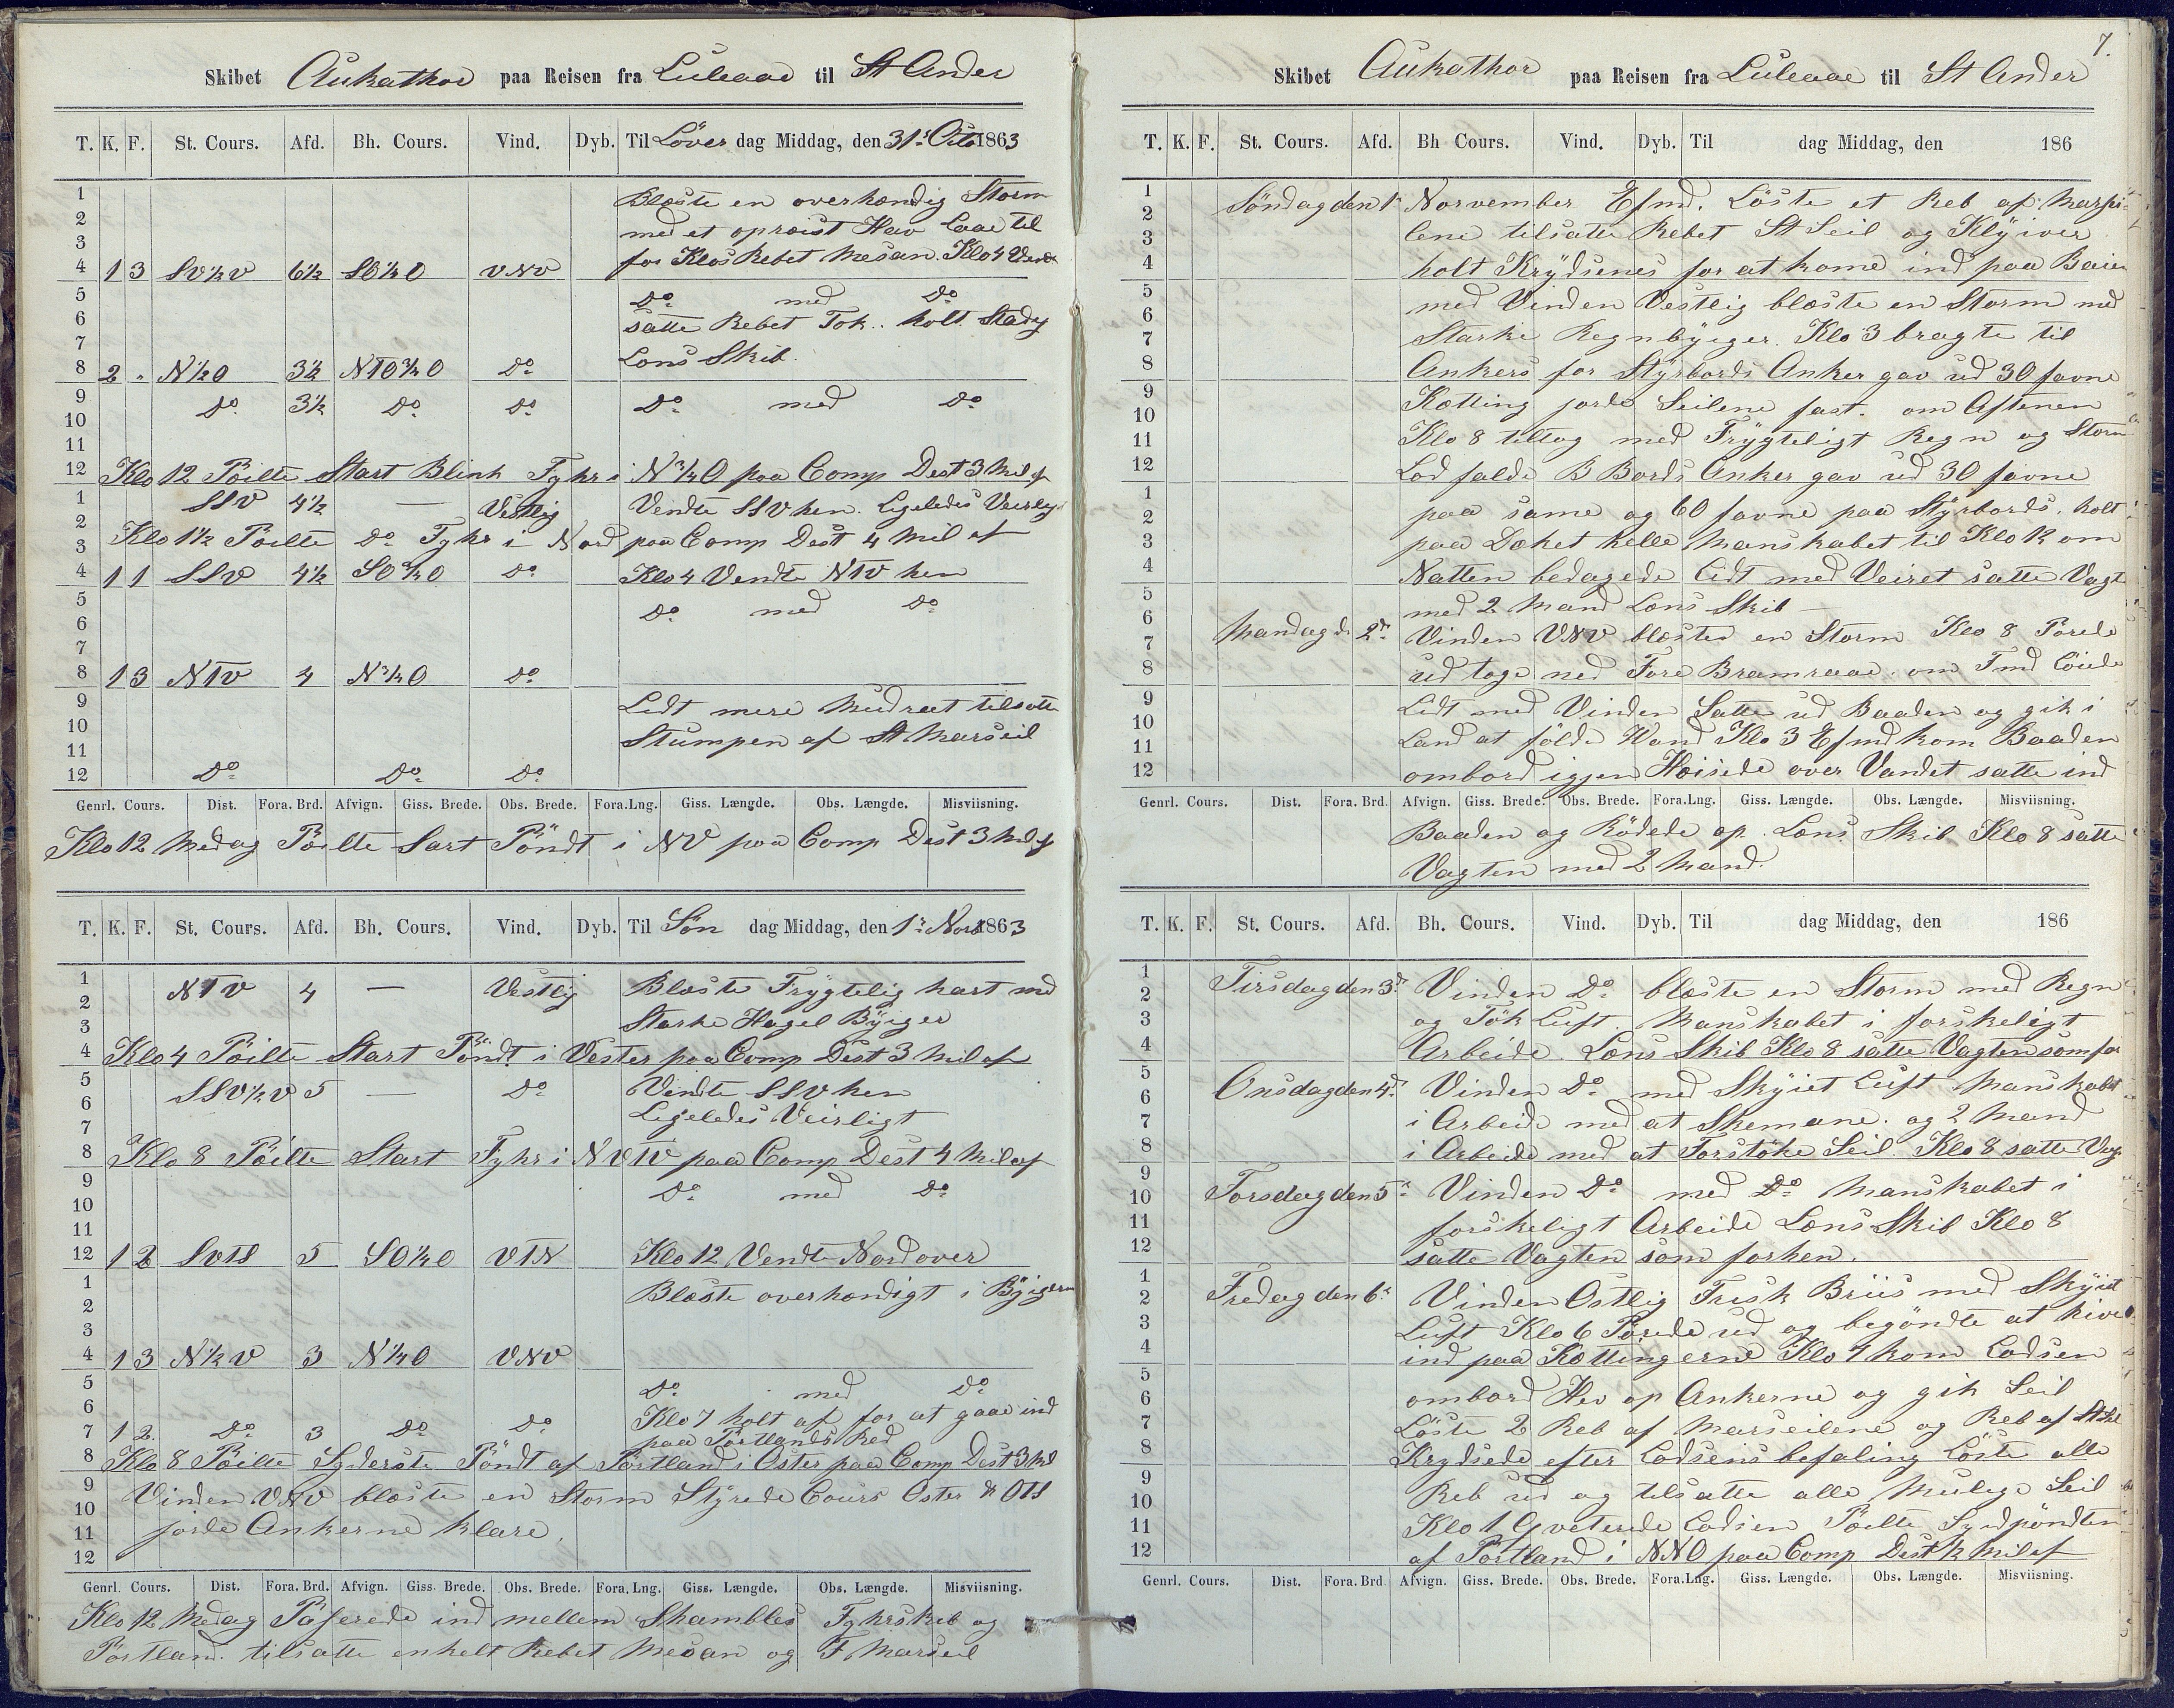 Skibet Aukathor paa Reisen fra Luleaae til St Ander
T. K. F. St. Cours. Afd. Bh. Cours. Vind. Dyb. Til Löver dag Middag, den 31s Octo 1863
1 Blæste en overhændig Storm
2 med et oprøist Hav Laae til
3 for Klos Rebet Mesan. Klo 4 Vendt
4 1 3 SV½V 6½ SO¼O VNV
5 Do med Do
6 satte Rebet Fok. holt Stadig
7 Lens Skib.
8 2 " N½O 3½ NTO¾O Do
9 Do 3½ Do Do Do med Do
10
11
12 Klo 12 Pöilte Start Blink Fyhr i N¾O paa Comp Dest 3 Mil af
1 SSV 4½ — Vestlig Vendte SSV hen. Ligeledes Veirlig
2 Klo 1½ Pöilte Do Fyhr i Nord paa Comp Dest 4 Mil af
3
4 1 1 SSV 4½ SO¾O Do Klo 4 Vendte NTV hen
5 Do med Do
6
7
8 1 3 NTV 4 N¾O Do
9 Lidt mere Mudraet tilsatte
10 Stumpen af St Marseil
11
12 Do Do Do
Genrl. Cours. Dist. Fora. Brd. Afvign. Giss. Brede. Obs. Brede. Fora. Lng. Giss. Længde. Obs. Længde. Misviisning.
Klo 12 Medag Pöilte Sart Pöndt i NV paa Comp Dest 3 Mil af
T. K. F. St. Cours. Afd. Bh. Cours. Vind. Dyb. Til Søn dag Middag, den 1s Novb 1863
1 NTV 4 — Vestlig Blæste Frygtelig hart med
2 Starke Hagel Byiger
3
4 Klo 4 Pöilte Start Pöndt i Vester paa Comp Dest 3 Mil af
5 SSV½V 5 — Do Vendte SSV hen
6 Ligeledes Veirligt
7
8 Klo 8 Pöilte Start Fyhr i NVTV paa Comp Dest 4 Mil af
9 Do med Do
10
11
12 1 2 SVTS 5 SO¼O VTN Klo 12 Vendte Nordover
1 Blæste overhændigt i Byigerne
2
3
4 1 3 N½V 3 N¼O VNV
5 Do med Do
6 Klo 7 holt af for at gaae ind
7 1 2. Do 3 Do Do paa Portlands Red
8 Klo 8 Pöilte Syderste Pöndt af Pörtland i Oster paa Comp Dest 3 Mil
9 Vinden VNV blæste en Storm Styrede Cours Oster & OTS
10 jorde Ankerne klare,
11
12
Genrl. Cours. Dist. Fora. Brd. Afvign. Giss. Brede. Obs. Brede. Fora. Lng. Giss. Længde. Obs. Længde. Misviisning.
Klo 12 Medag Paserede ind mellem Shambles Fyhrskib og
Pörtland. tilsatte enkelt Rebet Mesan og F Marseil
7.
Skibet Aukathor paa Reisen fra Luleaae til St Ander
T. K. F. St. Cours. Afd. Bh Cours. Vind. Dyb. Til dag Middag, den 186
1 Söndag den 1s Norvember Efmd. Löste et Reb af Marsei-
2 lene tilsatte Rebet St Seil og Klyiver
3 holt Krydsenes for at kome ind paa Baien
4 med Vinden Vestlig blæste en Storm med
5 Starke Regnbyiger. Klo 3 bragte til
6 Ankers for Styrbords Anker gav ud 30 favne
7 Kætting jorde Seilene fast. om Aftenen
8 Klo 8 tiltog med Frygteligt Regn og Storm
9 Lod falde B Bords Anker gav ud 30 favne
10 paa same og 60 favne paa Styrbords. holt
11 paa Dæket helle Manskabet til Klo 12 om
12 Natten bedagede Lidt med Veiret satte Vagt
1 med 2 Mand Lens Skib —
2 Mandag d. 2den Vinden VNV blæste en Storm Klo 8 Porede
3 ud toge ned Fore Bramraae. om Fmd Löiede
4 Lidt med Vinden Satte ud Baaden og gik i
5 Land at földe Vand Klo 3 Efmd kom Baaden
6 ombord igjen Heisede over Vandet satte ind
7
8
9
10
11
12
Genrl. Cours. Dist. Fora. Brd. Afvign. Giss. Brede. Obs. Brede. Fora. Lng. Giss. Længde. Obs. Længde. Misviisning.
Baaden og Rödede op. Lens Skib Klo 8 satte
Vagten med 2 Mand.
T. K. F. St. Cours. Afd. Bh. Cours. Vind. Dyb. Til dag Middag, den 186
1 Tirsdag den 3de Vinden Do blæste en Storm med Regn
2 og Tök Luft. Manskabet i forskeligt
3 Arbeide. Lens Skib Klo 8 satte Vagten som for
4
5 Onsdag den 4de Vinden Do med Skyiet Luft Manskabet
6 i Arbeide med at Skemane. og 2 Mand
7 i Arbeide med at Forstöke Seil. Klo 8 satte Vag
8
9 Torsdag den 5te Vinden Do med Do Manskabet i
10 forskeligt Arbeide Lens Skib Klo 8
11 satte Vagten som forhen.
12
1 Fredag den 6te Vinden Ostlig Frisk Briis med Skyiet
2 Luft Klo 6 Porede ud og begöndte at hive
3 ind paa Kættingerne Klo 7 kom Lodsen
4 ombord Hev op Ankerne og gik Seil
5 Löste 2 Reb af Marseilene og Reb af St Sl
6 Krydsede efter Lodsens befaling Löste alle
7 Reb ud og tilsatte alle Mulige Seil
8 Klo 1 Qveterede Lodsen Pöilte Sydpöndten
9 af Pörtland i NNO paa Comp Dest ½ Mil af
10
11
12
Genrl. Cours. Dist. Fora. Brd Afvign. Giss. Brede. Obs. Brede. Fora. Lng. Giss. Længde. Obs. Længde. Misviisning.